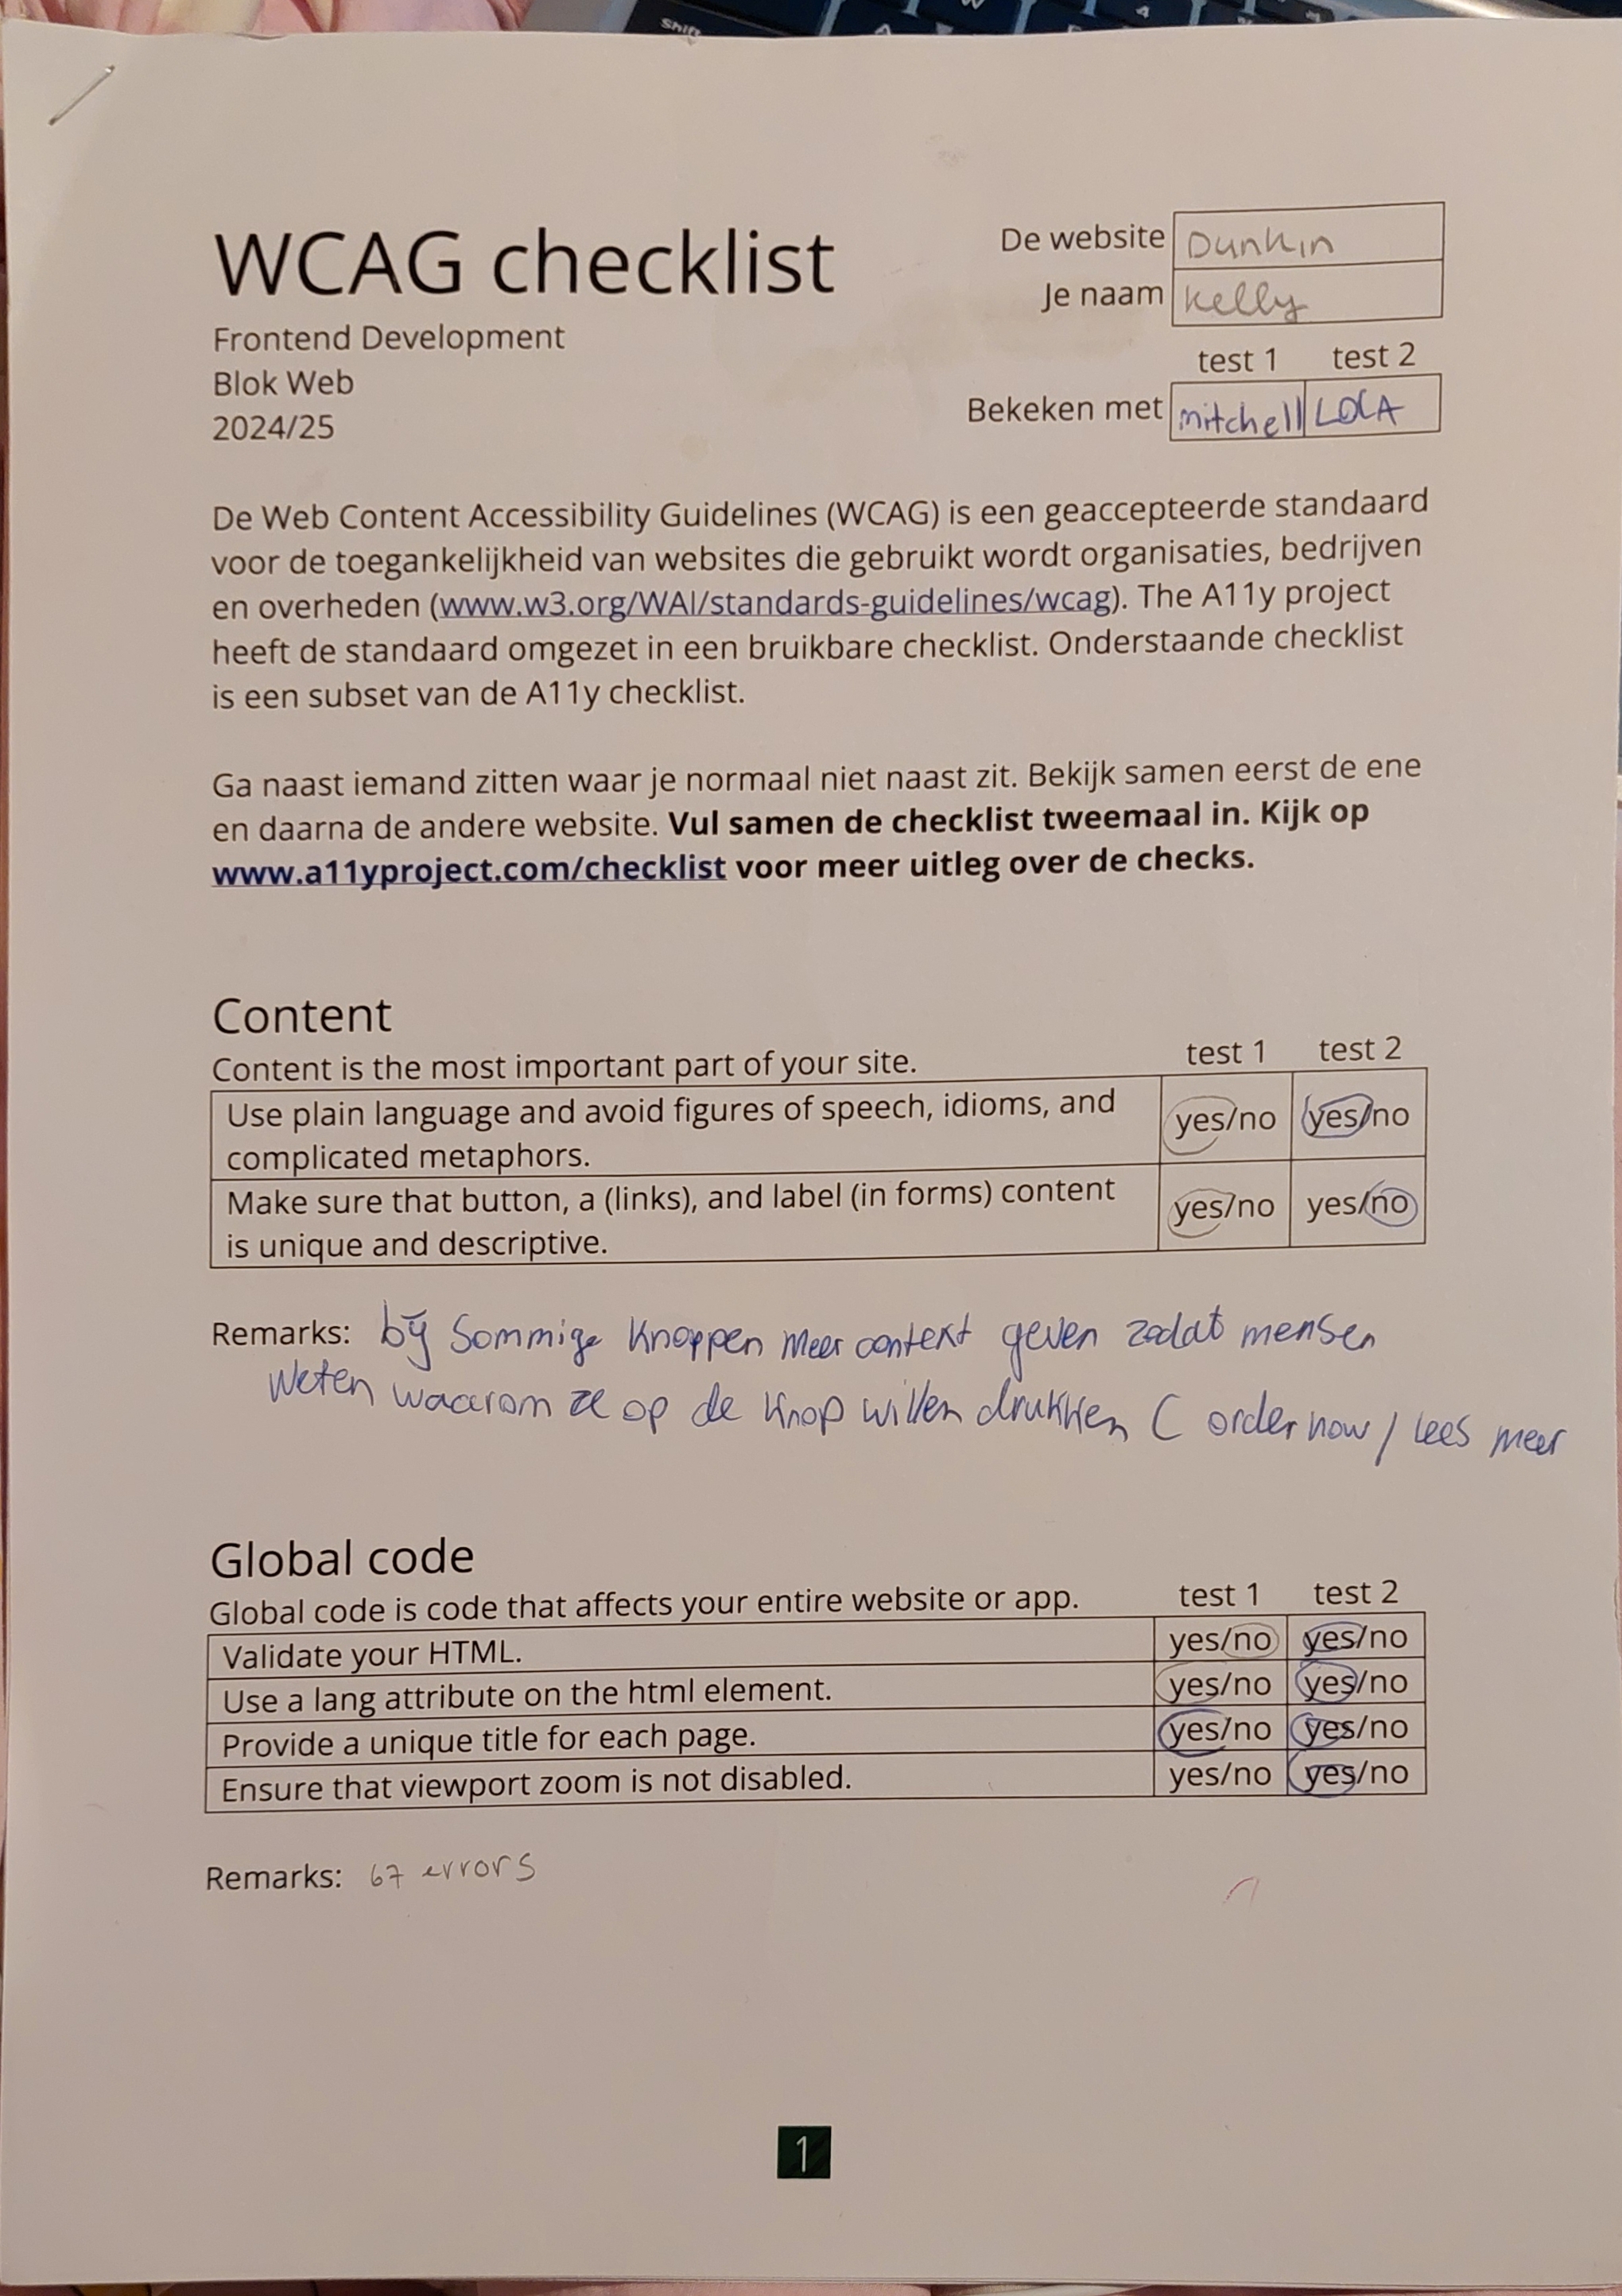 Shift
WCAG checklist
Frontend Development
Blok Web
2024/25
De website Dunkin
Je naam Kelly
test 1 test 2
Bekeken met mitchell LOLA
De Web Content Accessibility Guidelines (WCAG) is een geaccepteerde standaard
voor de toegankelijkheid van websites die gebruikt wordt organisaties, bedrijven
en overheden (www.w3.org/WAI/standards-guidelines/wcag). The A11y project
heeft de standaard omgezet in een bruikbare checklist. Onderstaande checklist
is een subset van de A11y checklist.
Ga naast iemand zitten waar je normaal niet naast zit. Bekijk samen eerst de ene
en daarna de andere website. Vul samen de checklist tweemaal in. Kijk op
www.a11yproject.com/checklist voor meer uitleg over de checks.
Content
Content is the most important part of your site. test 1 test 2
Use plain language and avoid figures of speech, idioms, and yes/no yes/no
complicated metaphors.
Make sure that button, a (links), and label (in forms) content yes/no yes/no
is unique and descriptive.
Remarks: bij Sommige Knoppen Meer context geven zodat mensen
Weten waarom ze op de Knop willen drukken ( order now / Lees meer
Global code
Global code is code that affects your entire website or app. test 1 test 2
Validate your HTML. yes/no yes/no
Use a lang attribute on the html element. yes/no yes/no
Provide a unique title for each page. yes/no yes/no
Ensure that viewport zoom is not disabled. yes/no yes/no
Remarks: 67 errors
1